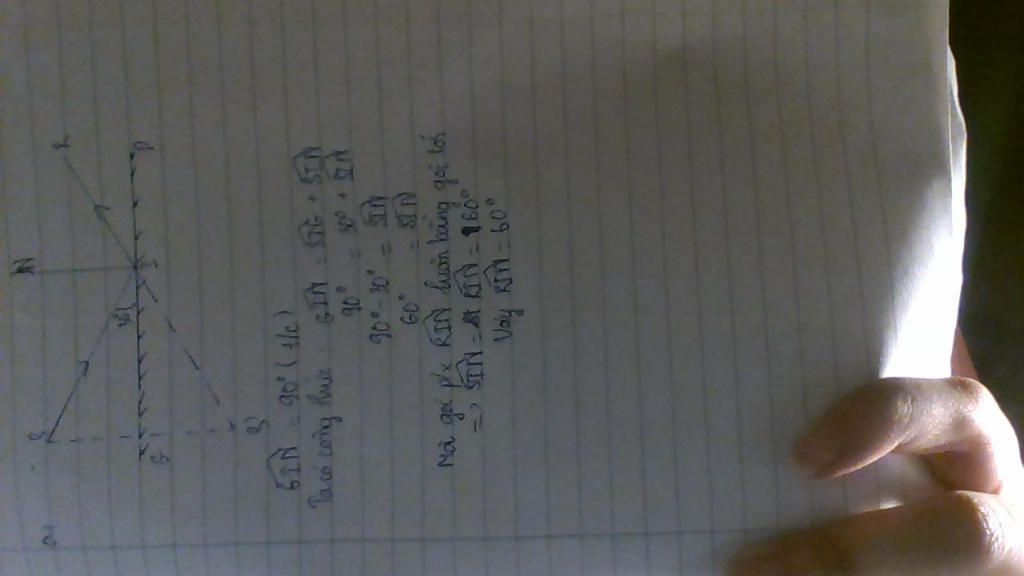 N
R
S
I
P
G
S'
GIN = 90° (t/c)
Ta có công thức : GIN = SIG + SIN
90° = 30° + SIN
90° - 30° = SIN
60° = SIN
Mà góc p/x RIN luôn bằng góc tới
=> SIN = RIN = 60°
Vậy RIN = 60°